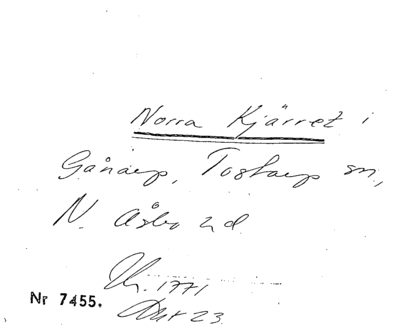 Norra Kjärret i
Gånarp, Tostarp sn,
N. Åsbo hd
1771
Nr 7455.
23